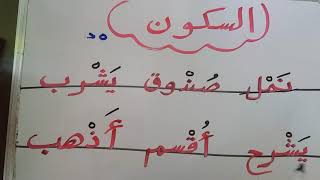 السكون
نَمْل صُنْدوق يَشْرب
يَشْرح أُقْسم أَذْهب